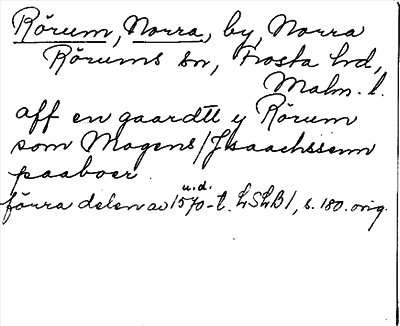 Rörum, Norra, by, Norra
Rörums sn, Frosta hd,
Malm. l.
aff en gaardtt y Rörum
som Mogens/Jsaachssenn
paaboer
u.d.
förra delen av 1570-t. LSLB1, s. 180. orig.